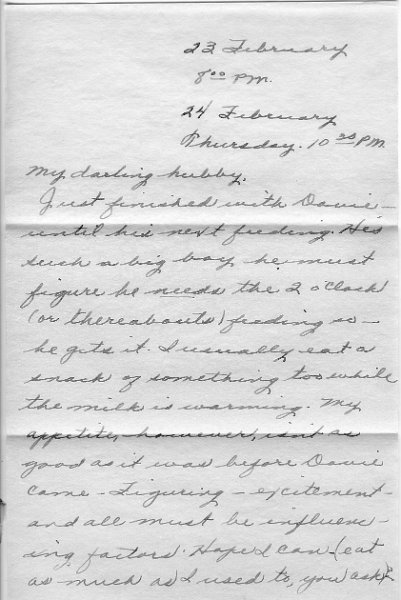 23 February
8⁰⁰ PM.
24 February
Thursday. 10³⁰ PM
My darling hubby,
Just finished with Davie -
until his next feeding. He's
such a big boy he must
figure he needs the 2 o'clock
(or thereabouts) feeding so -
he gets it. I usually eat a
snack of something too while
the milk is warming. My
appetite, however, isn't as
good as it was before Davie
came - Figuring - excitement -
and all must be influenc-
ing factors. Hope I can (eat
as much as I used to, you ask)?